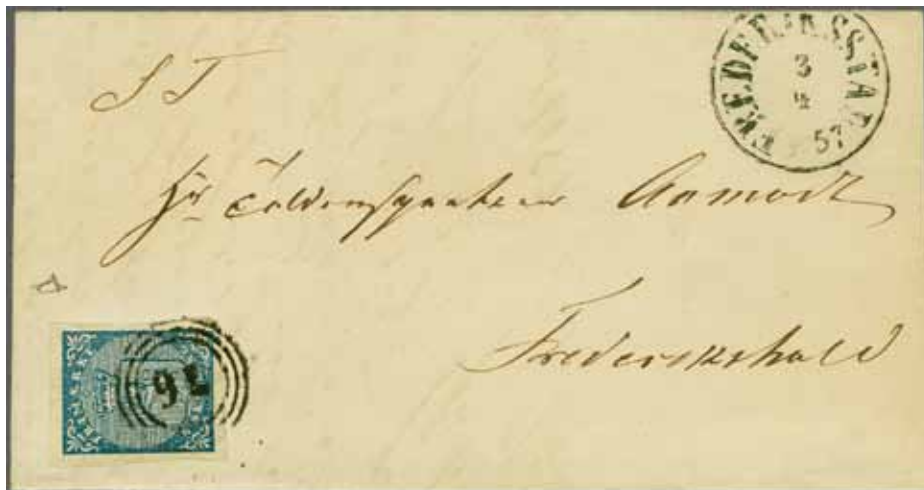 FREDERIKSSTAD
3
4
57
S T
Hr Toldinspecteur Aamodt
Frederikshald
16